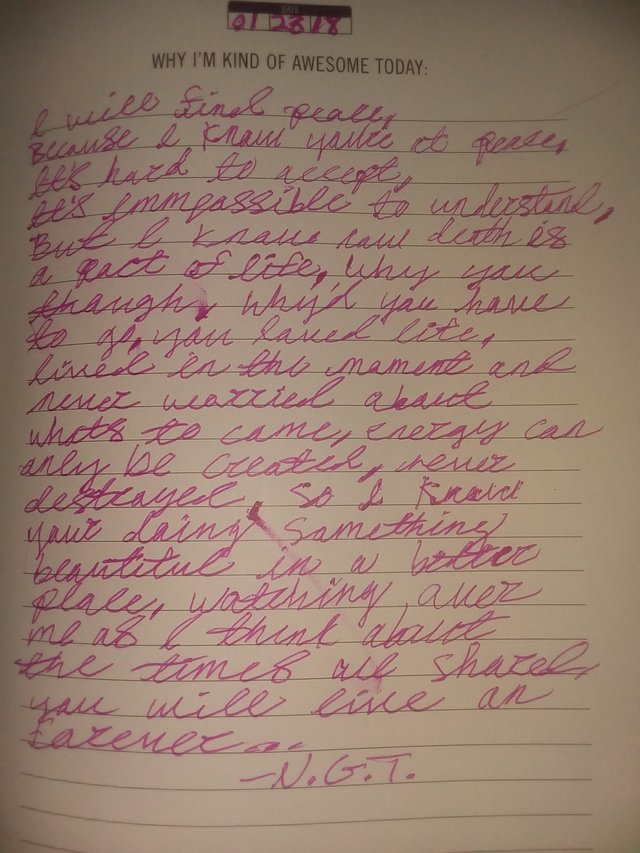 DATE
01 23 18
WHY I'M KIND OF AWESOME TODAY:
I will find peace,
Because I know you're at peace,
It's hard to accept,
It's immpossible to understand,
But I know now death is
a part of life, why you
though, why'd you have
to go, you loved life,
lived in the moment and
never worried about
whats to come, energy can
only be created, never
destroyed so I know
your doing something
beautiful in a better
place, watching over
me as I think about
the times we shared,
you will live on
forever...
-N.G.T.